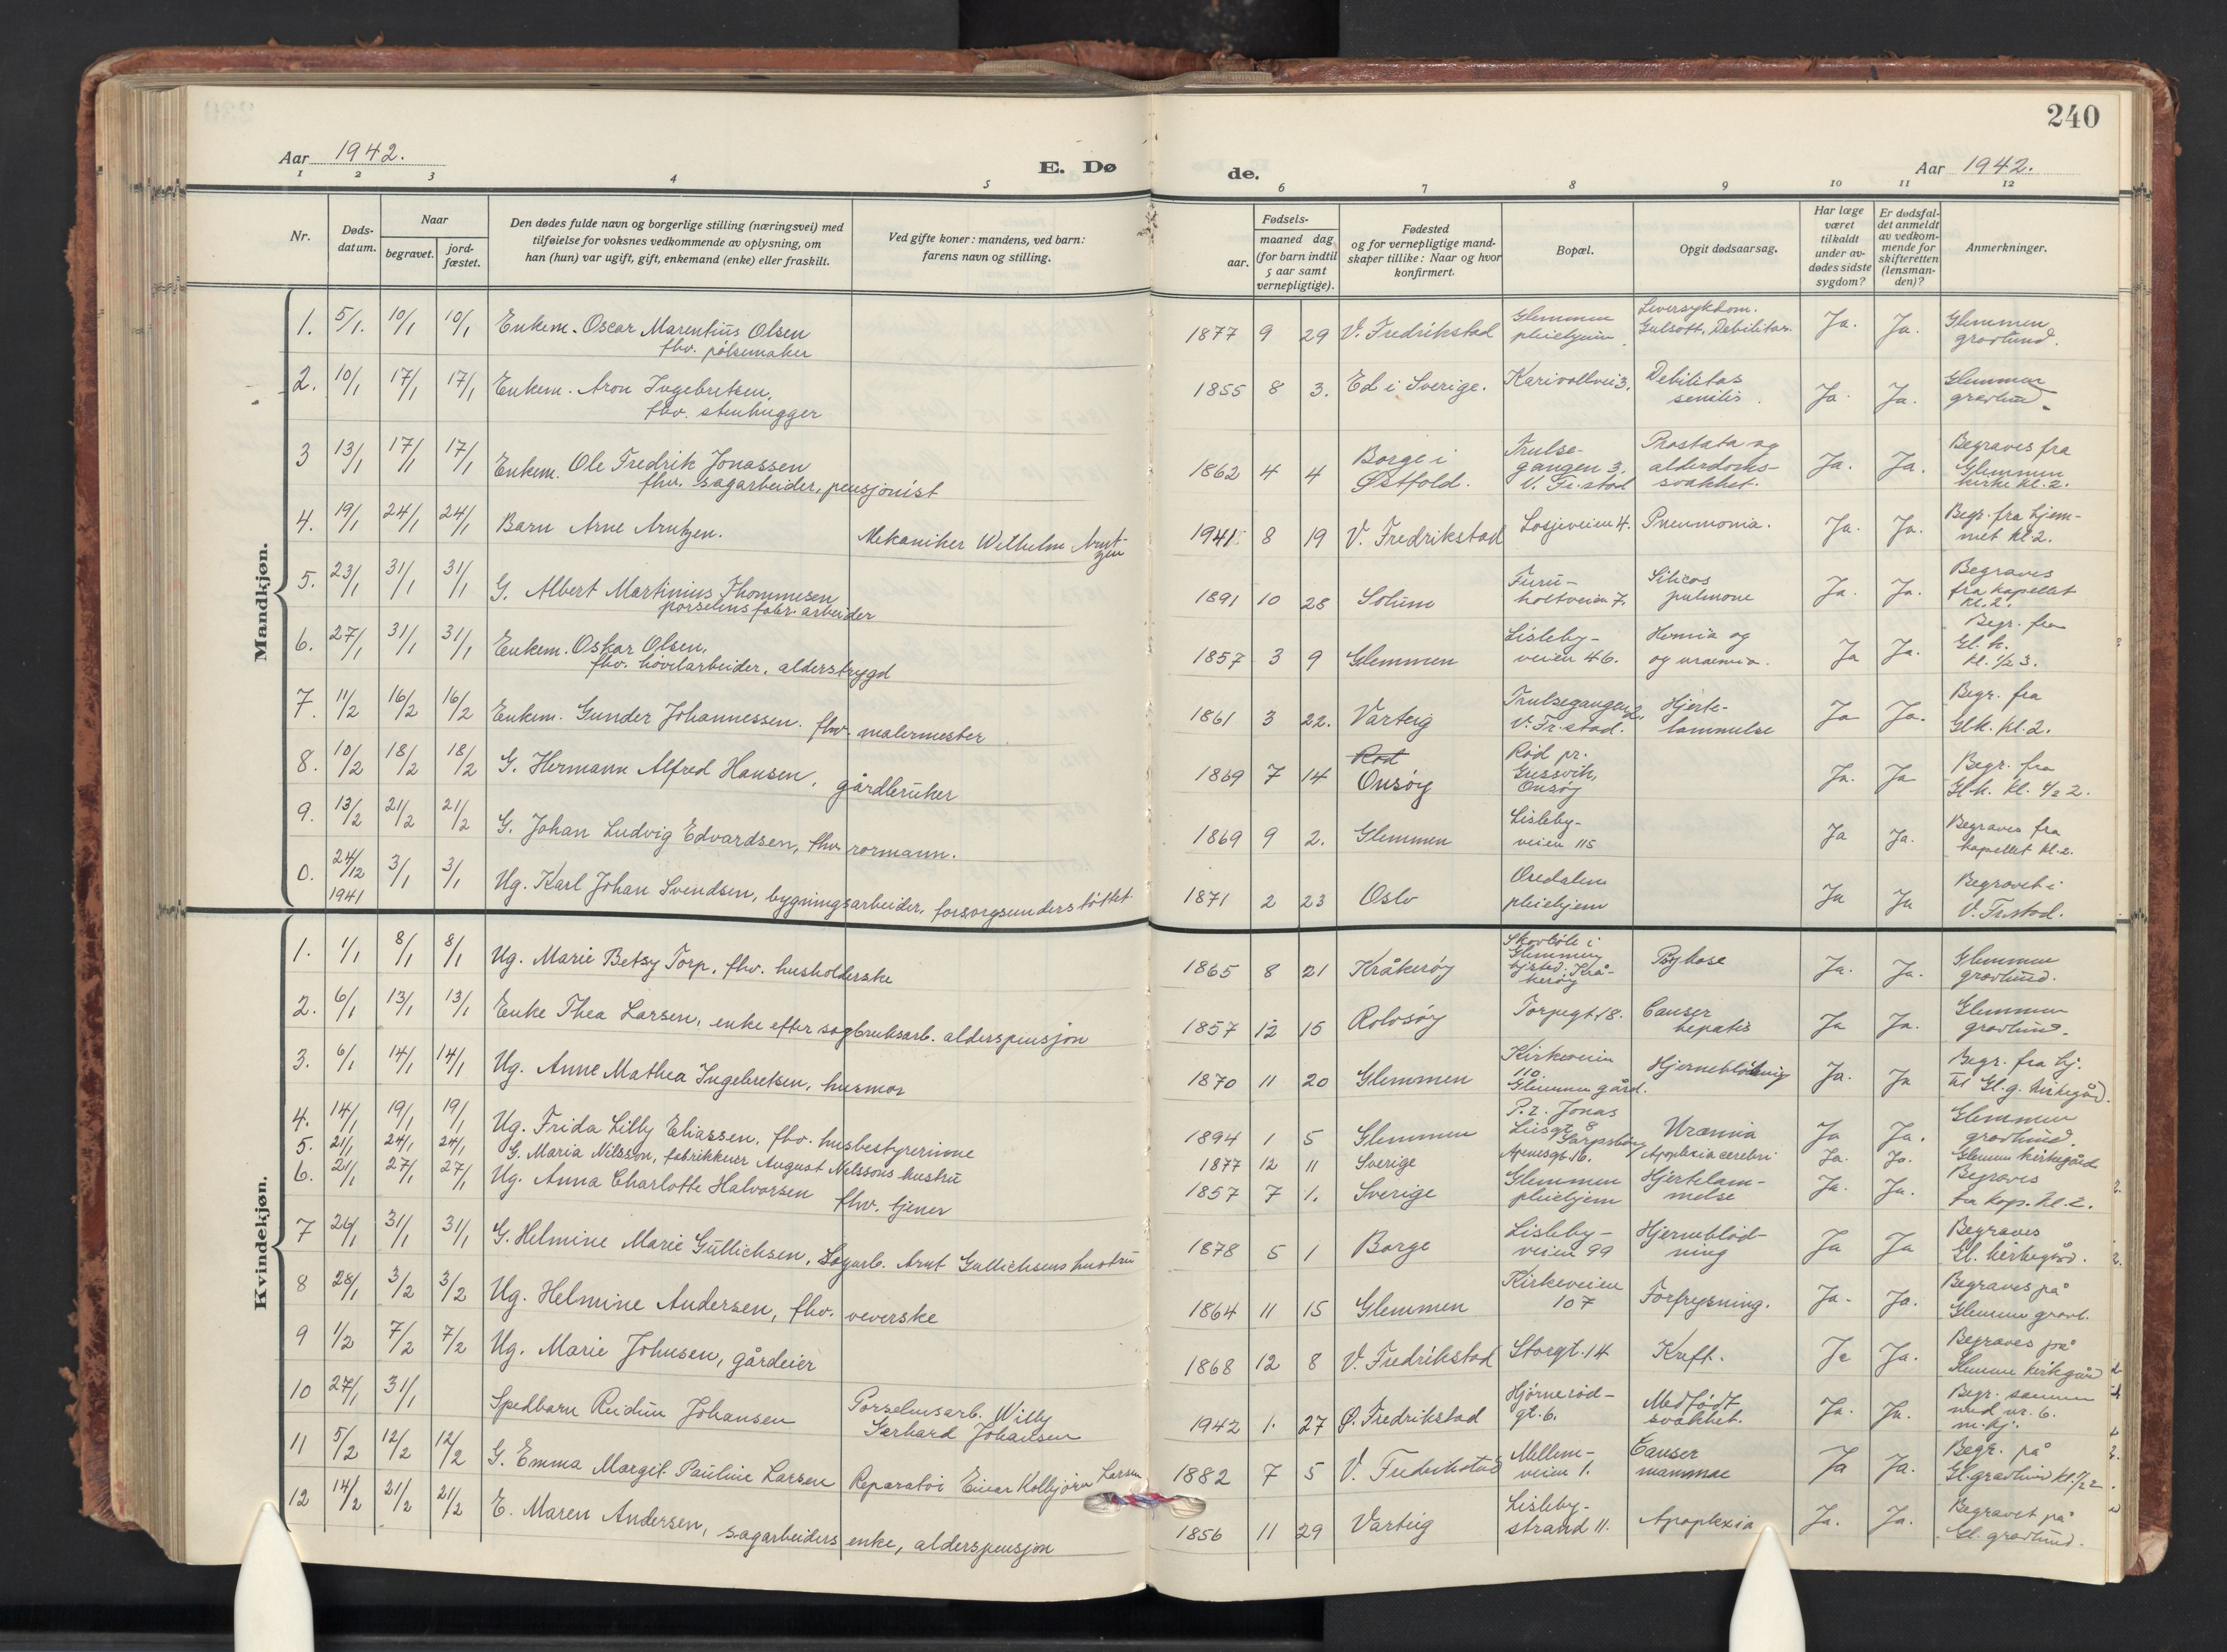 240
Aar 1942.
E. Døde.
Aar 1942.
1 2 3 4 5 6 7 8 9 10 11 12
Nr.
Døds-datum.
Naar
begravet.
jord-fæstet.
Den dødes fulde navn og borgerlige stilling (næringsvei) med
tilføielse for voksnes vedkommende av oplysning, om
han (hun) var ugift, gift, enkemand (enke) eller fraskilt.
Ved gifte koner: mandens, ved barn:
farens navn og stilling.
Fødsels-
aar.
maaned dag
(for barn indtil
5 aar samt
vernepligtige).
Fødested
og for vernepligtige mand-
skaper tillike: Naar og hvor
konfirmert.
Bopæl.
Opgit dødsaarsag.
Har læge
været
tilkaldt
under av-
dødes sidste
sygdom?
Er dødsfal-
det anmeldt
av vedkom-
mende for
skifteretten
(lensman-
den)?
Anmerkninger.
Mandkjøn.
1. 5/1. 10/1 10/1 Enkem. Oscar Marentius Olsen fhv. pølsemaker 1877 9 29 V. Fredrikstad Glemmen pleiehjem Leversykdom. Gulsott, Debilitas. Ja. Ja. Glemmen gravlund.
2. 10/1 17/1 17/1 Enkem. Aron Ingebretsen, fhv. stenhugger 1855 8 3. Ed i Sverige. Karivollvei 3, Debilitas senilis. Ja. Ja. Glemmen gravlund.
3 13/1 17/1 17/1 Enkem. Ole Fredrik Jonassen fhv. sagarbeider, pensjonist 1862 4 4 Borge i Østfold. Trulse-gangen 3. V. Fr.stad Prostata og alderdoms-svakhet. Ja. Ja. Begraves fra Glemmen kirke kl. 2.
4. 19/1 24/1 24/1 Barn Arne Arntzen. Mekaniker Wilhelm Arnt-zen 1941 8 19 V. Fredrikstad Losjeveien 4. Pneumonia. Ja. Ja. Begr. fra hjem-met kl. 2.
5. 23/1 31/1 31/1 G. Albert Martinius Thommesen porselens fabr. arbeider 1891 10 28 Solum Furu-holtveien 7. Silicos pulmone Ja. Ja. Begraves fra kapellet kl. 2.
6. 27/1 31/1 31/1 Enkem. Oskar Olsen, fhv. høvlarbeider, alderstrygd 1857 3 9 Glemmen Lisleby-veien 46. og og uraemia. Ja Ja. Begr. fra Gl. k. kl. 1/2 3.
7. 11/2 16/2 16/2 Enkem. Gunder Johannessen. fhv. malermester 1861 3 22. Varteig Trulsegangen 2, V. Fr.stad. Hjerte-lammelse Ja Ja. Begr. fra Gl.k. kl. 2.
8. 10/2 18/2 18/2 G. Hermann Alfred Hansen, gårdbruker 1869 7 14 Rød Onsøy Rød pr. Gressvik, Onsøy Ja. Ja Begr. fra Gl.k. kl. 1/2 2.
9. 13/2 21/2 21/2 G. Johan Ludvig Edvardsen, fhv. rormann. 1869 9 2. Glemmen Lisleby-veien 115 Ja Ja. Begraves fra kapellet kl. 2.
0. 24/12 1941 3/1 3/1 Ug. Karl Johan Svendsen, bygningsarbeider, forsorgsunderstøttet 1871 2 23 Oslo Oredalen pleiehjem Ja Ja Begravet i V. Fr.stad.
Kvindekjøn.
1. 1/1 8/1 8/1 Ug. Marie Betsy Torp, fhv. husholderske 1865 8 21 Kråkerøy i Glemmen hjsted. Krå-kerøy Psykose Ja. Ja. Glemmen gravlund.
2. 6/1 13/1 13/1 Enke Thea Larsen, enke efter sagbruksarb. alderspensjon 1857 12 15 Rolvsøy Torpegt. 18. Canser hepatis Ja Ja. Glemmen gravlund.
3. 6/1 14/1 14/1 Ug. Anne Mathea Ingebretsen, husmor 1870 11 20 Glemmen Kirkeveien 110. Glemmen gård. Hjerneblødning Ja. Ja Begr. fra hj. til Gl. g. kirkegård.
4. 14/1 19/1 19/1 Ug. Frida Lilly Eliassen, fhv. husbestyrerinne 1894 1 5 Glemmen P.t. Jonas Liesgt. 8 Sarpsborg Uræmia Ja Ja. Glemmen gravlund.
5. 21/1 24/1 24/1 G. Maria Nilsson, fabrikkeier August Nilssons hustru 1877 12 11 Sverige Apenesgt. 16. Apoplexia cerebri Ja. Ja. Glemmen kirkegård
6. 21/1 27/1 27/1 Ug. Anna Charlotte Halvorsen fhv. tjener 1857 7 1. Sverige Glemmen pleiehjem Hjertelam-melse Ja. Ja. Begraves fra kap. kl. 2.
7 26/1 31/1 31/1 G. Helmine Marie Gullichsen, Sagarb. Arnt Gullichsens hustru 1878 5 1 Borge Lisleby-veien 99 Hjerneblød-ning Ja Ja Begraves Gl. kirkegård.
8 28/1 3/2 3/2 Ug. Helmine Andersen, fhv. veverske 1864 11 15 Glemmen Kirkeveien 107 Forfrysning. Ja. Ja. Begraves på Glemmen gravl.
9 1/2 7/2 7/2 Ug. Marie Johnsen, gårdeier 1868 12 8 V. Fredrikstad Storgt. 14 Kreft. Ja Ja. Begraves på Glemmen kirkegård
10 27/1 31/1 Spedbarn Reidun Johansen Porselensarb. Willy Gerhard Johansen 1942 1. 27 Ø. Fredrikstad Hjørnerød-gt. 6. Medfødt svakhet. Ja. Ja. Begr. sammen med nr. 6. m.kj.
11 5/2 12/2 12/2 G. Emma Margit Pauline Larsen Reparatør Einar Kolbjørn Larsen 1882 7 5 V. Fredrikstad Mellem-veien 1. Canser mammae Ja Ja. Begr. på Gl. gravlund kl. 1/2 2
12 14/2 21/2 21/2 E. Maren Andersen, sagarbeiders enke, alderspensjon 1856 11 29 Varteig Lisleby-strand 11. Apoplexia Ja. Ja. Begravet på Gl. gravlund.